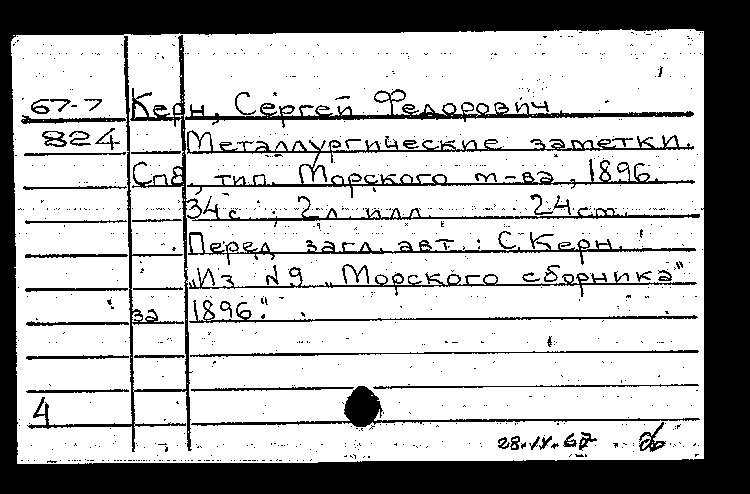 67-7 Керн, Сергей Федорович.
824 Металлургические заметки.
Спб, тип. Морского т-ва, 1896.
34 с.; 2 л илл. 24 cm.
Перед загл. авт.: С. Керн.
"Из №9 „Морского сборника"
за 1896."
4
28.IV.67